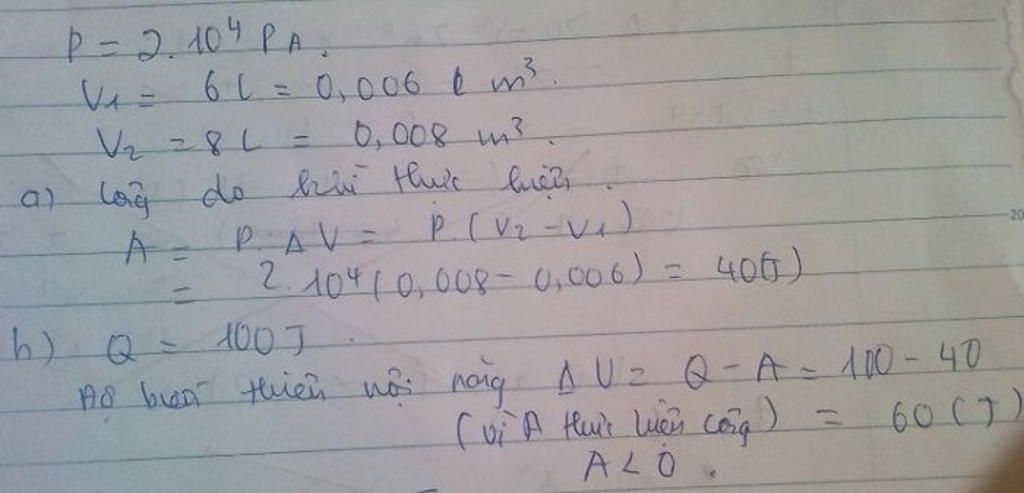 P = 2.10⁴ PA.
V₁ = 6 L = 0,006 m³.
V₂ = 8 L = 0,008 m³.
a) Công do khí thực hiện.
A = P.ΔV = P.(V₂ - V₁)
= 2.10⁴(0,008 - 0,006) = 40(J)
b) Q = 100J.
biến thiên nội năng ΔU = Q - A = 100 - 40
(vì A thực hiện công) = 60(J)
A < 0.
20